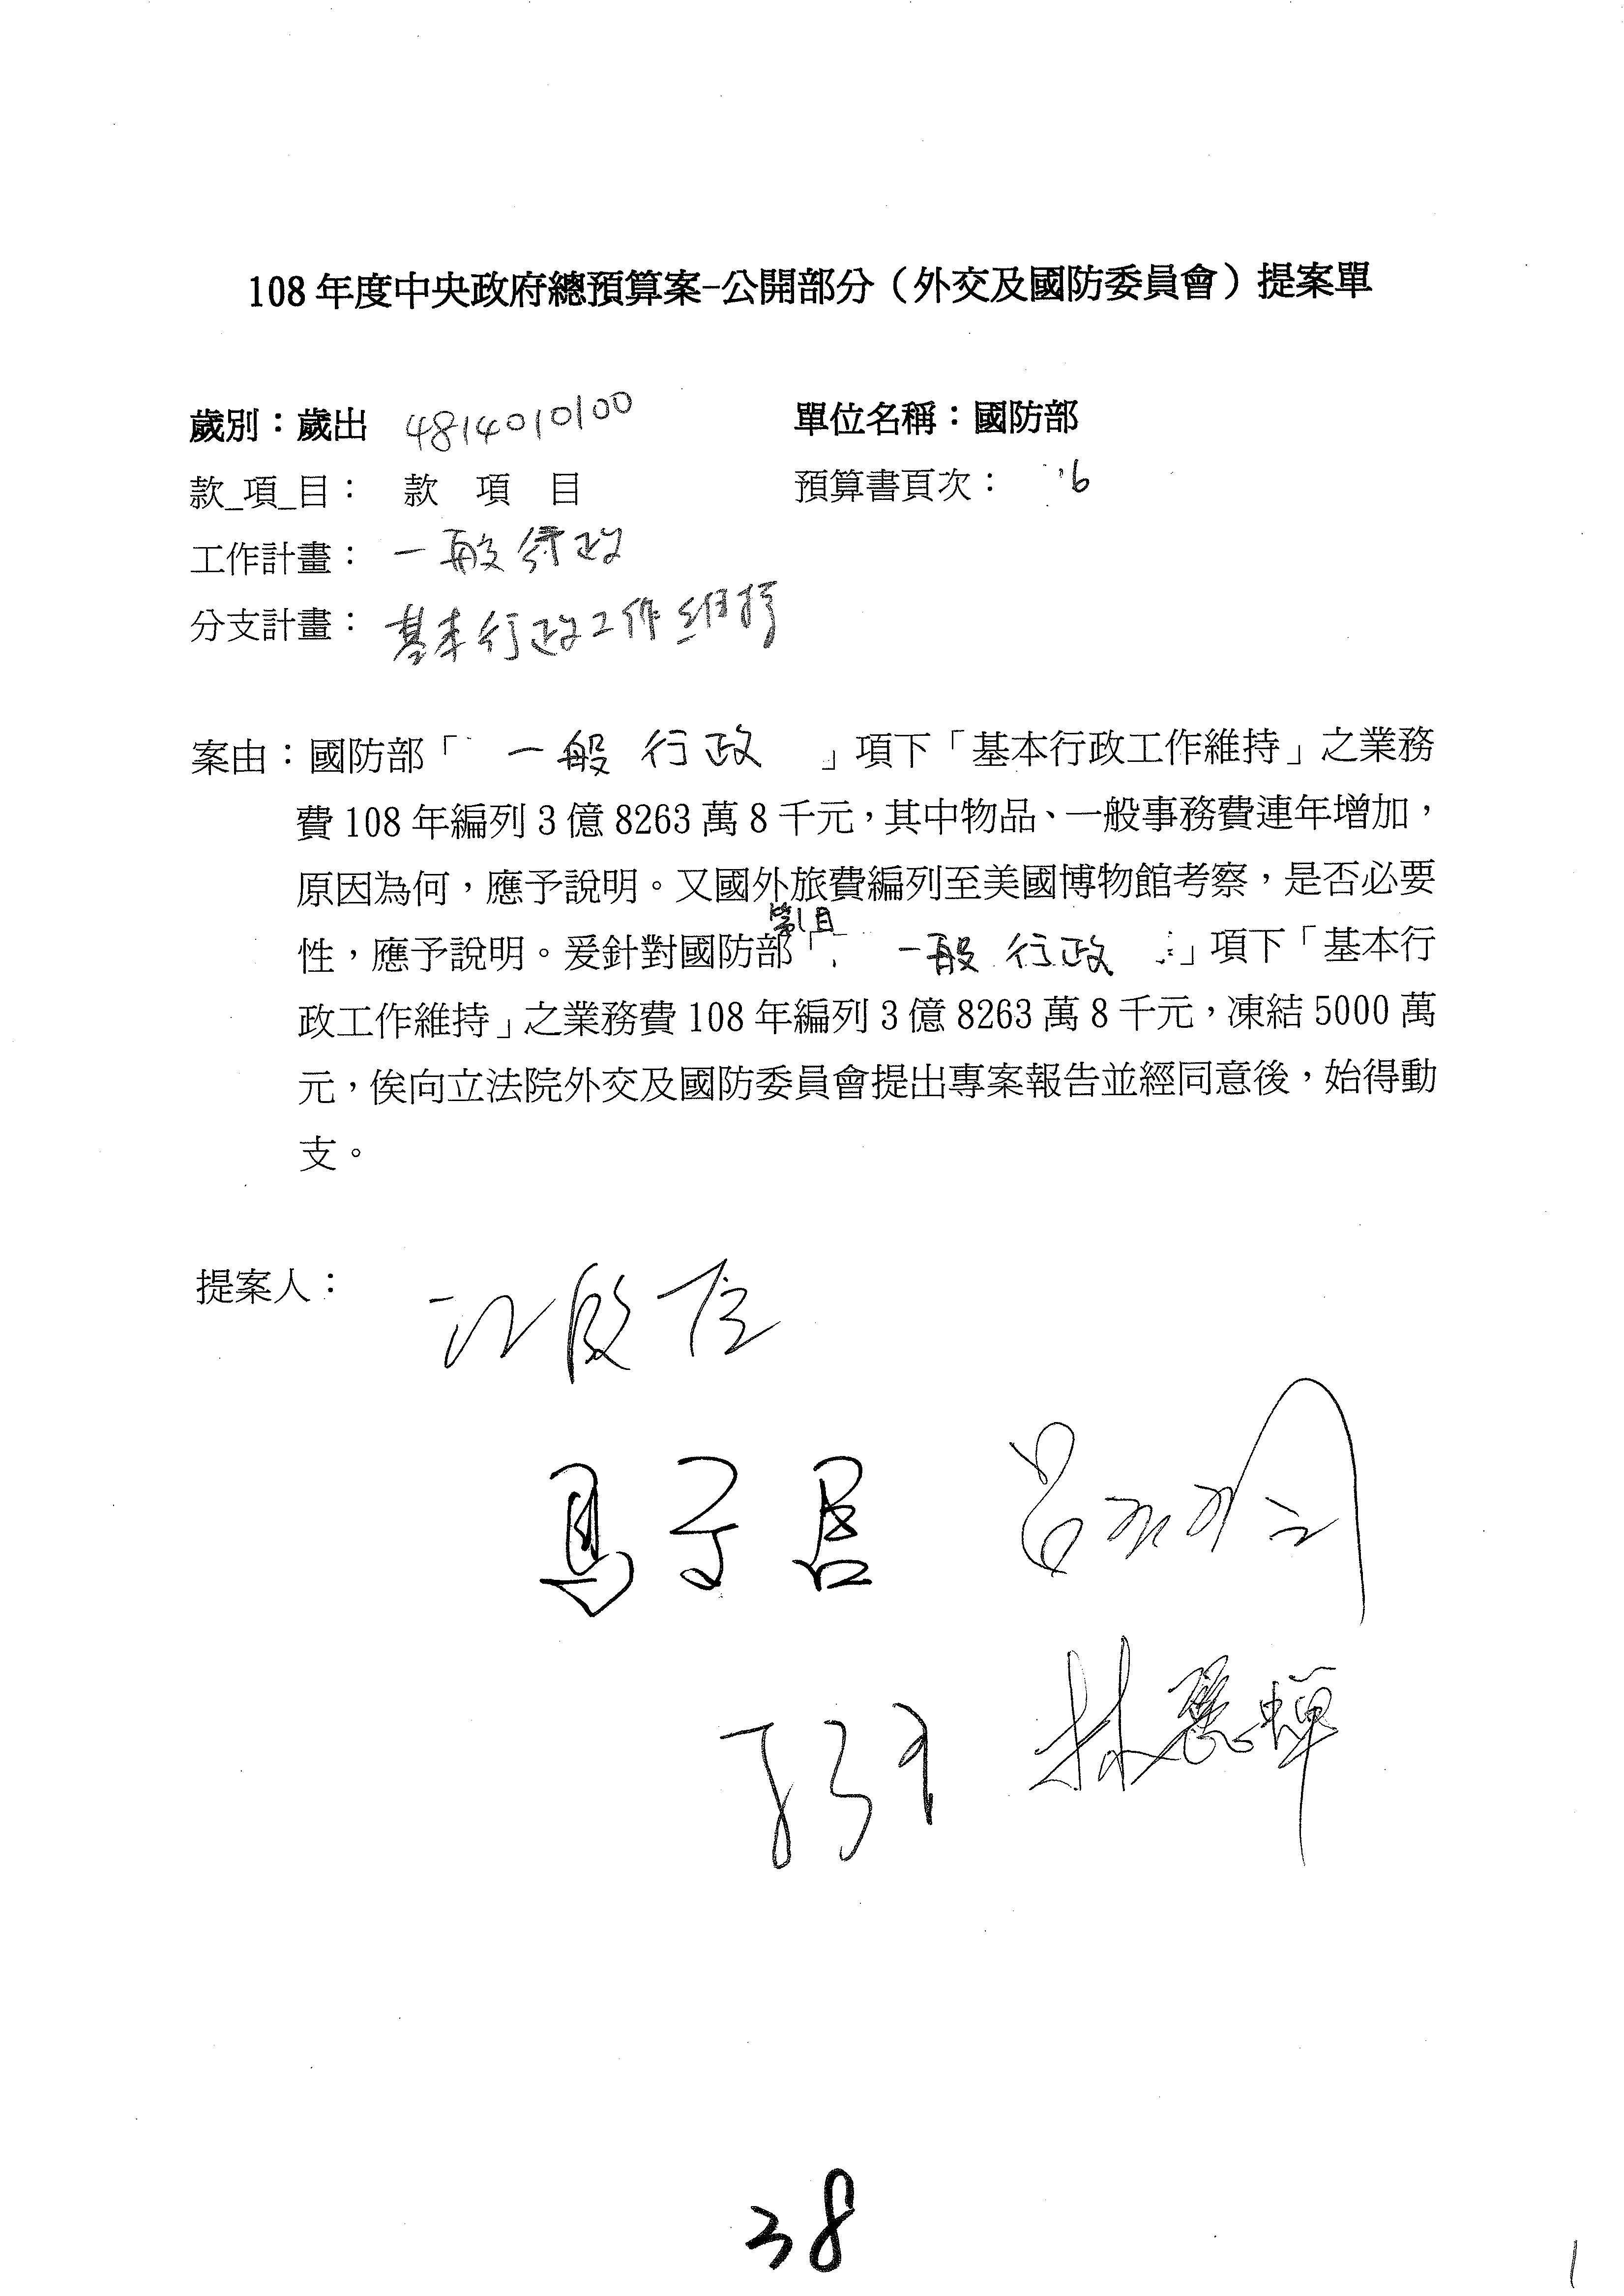 108年度中央政府總預算案-公開部分（外交及國防委員會）提案單
歲別：歲出 4814010100 單位名稱：國防部
款_項_目： 款 項 目 預算書頁次： 6
工作計畫： 一般行政
分支計畫： 基本行政工作維持
案由：國防部「一般行政」項下「基本行政工作維持」之業務
費108年編列3億8263萬8千元，其中物品、一般事務費連年增加，
原因為何，應予說明。又國外旅費編列至美國博物館考察，是否必要
第1目
性，應予說明。爰針對國防部「一般行政」項下「基本行
政工作維持」之業務費108年編列3億8263萬8千元，凍結5000萬
元，俟向立法院外交及國防委員會提出專案報告並經同意後，始得動
支。
提案人：
江啟臣
馬文君 呂玉玲
林麗蟬
38
1